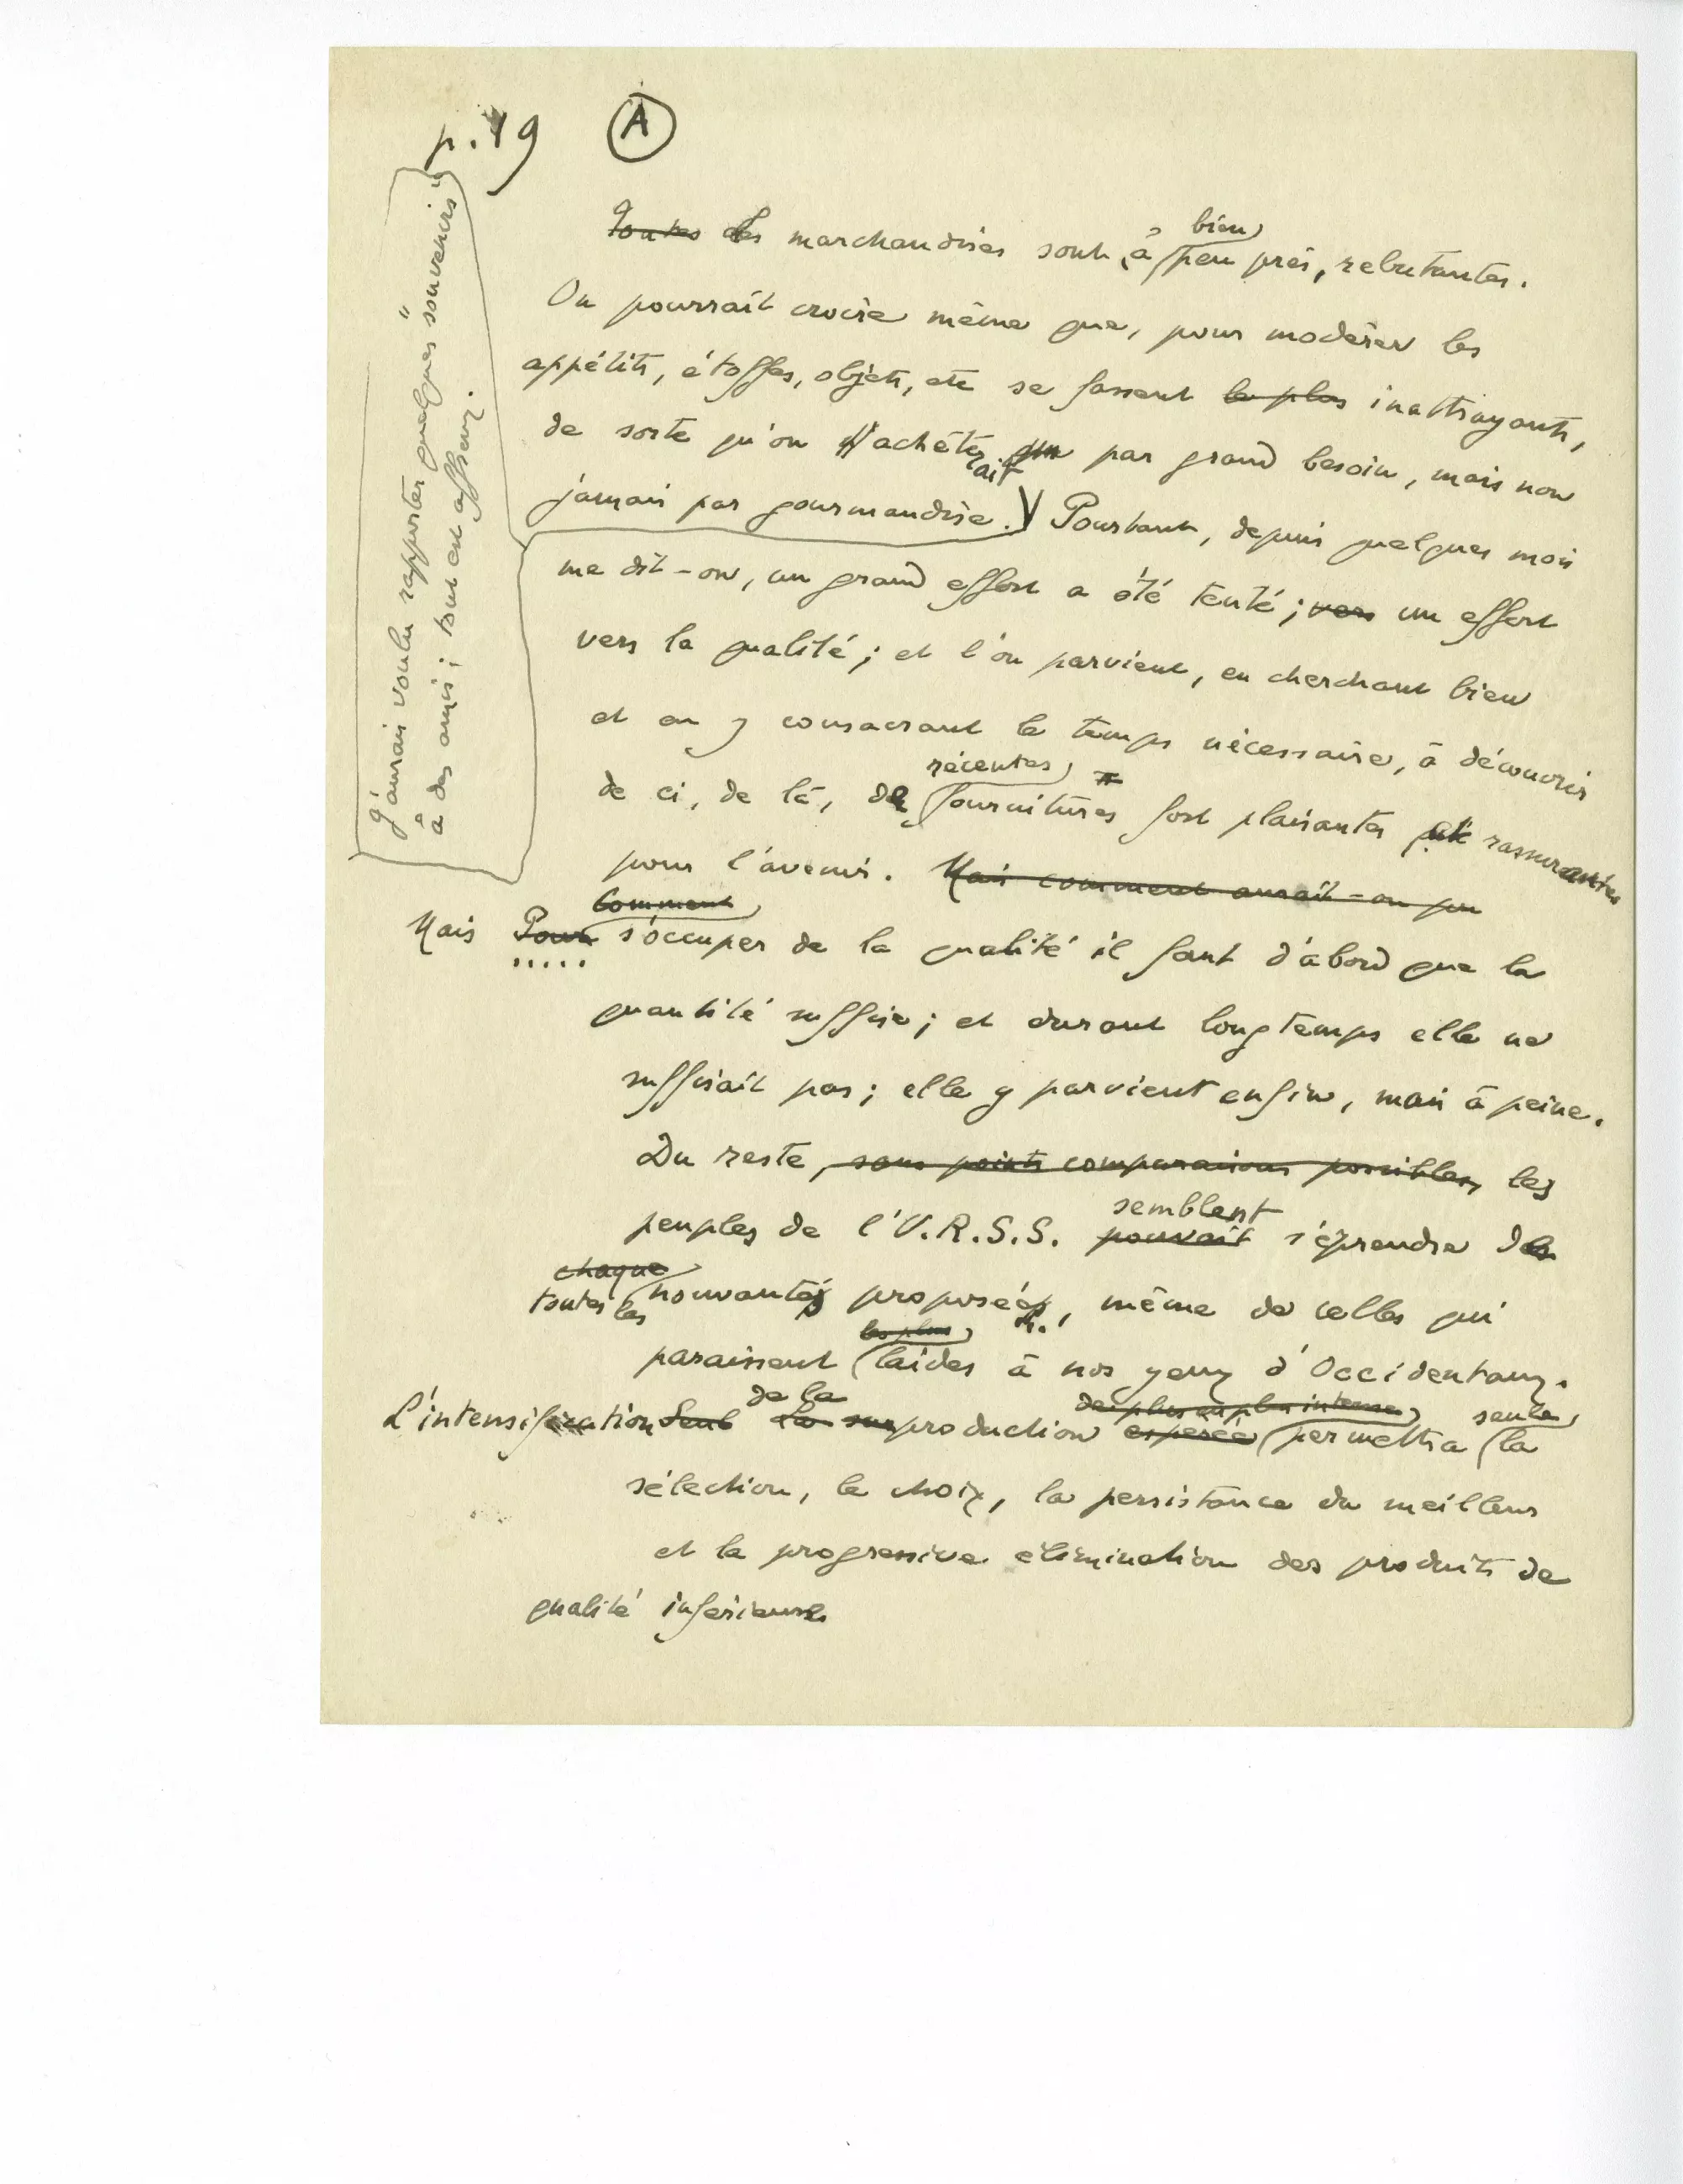 p. 19 A
bien
Toutes Les marchandises sont, à peu près, rebutantes.
On pourrait croire même que, pour modérer les
appétits, étoffes, objets, etc se fassent le plus inattrayants,
de sorte qu'on n'achèterait que par grand besoin, mais non
jamais par gourmandise. Pourtant, depuis quelques mois
me dit-on, un grand effort a été tenté ; vers un effort
vers la qualité ; et l'on parvient, en cherchant bien
et en y consacrant le temps nécessaire, à découvrir
récentes
de ci, de là, de fournitures fort plaisantes et rassurantes
pour l'avenir. Mais comment aurait-on pu
Comment
Mais Pour s'occuper de la qualité il faut d'abord que la
quantité suffise ; et durant longtemps elle ne
suffisait pas ; elle y parvient enfin, mais à peine.
Du reste, sans points comparaisons possibles, les
semblent
peuples de l'U.R.S.S. pouvait s'éprendre de
chaque
toutes les nouveautés proposées, même de celles qui
les plus
paraissent laides à nos yeux d'Occidentaux.
de la de plus en plus intense seule
L'intensification Seule la surproduction espérée permettra la
sélection, le choix, la persistance du meilleur
et la progressive élimination des produits de
qualité inférieure
J'aurais voulu rapporter quelques "souvenirs"
à des amis ; tout est affreux.